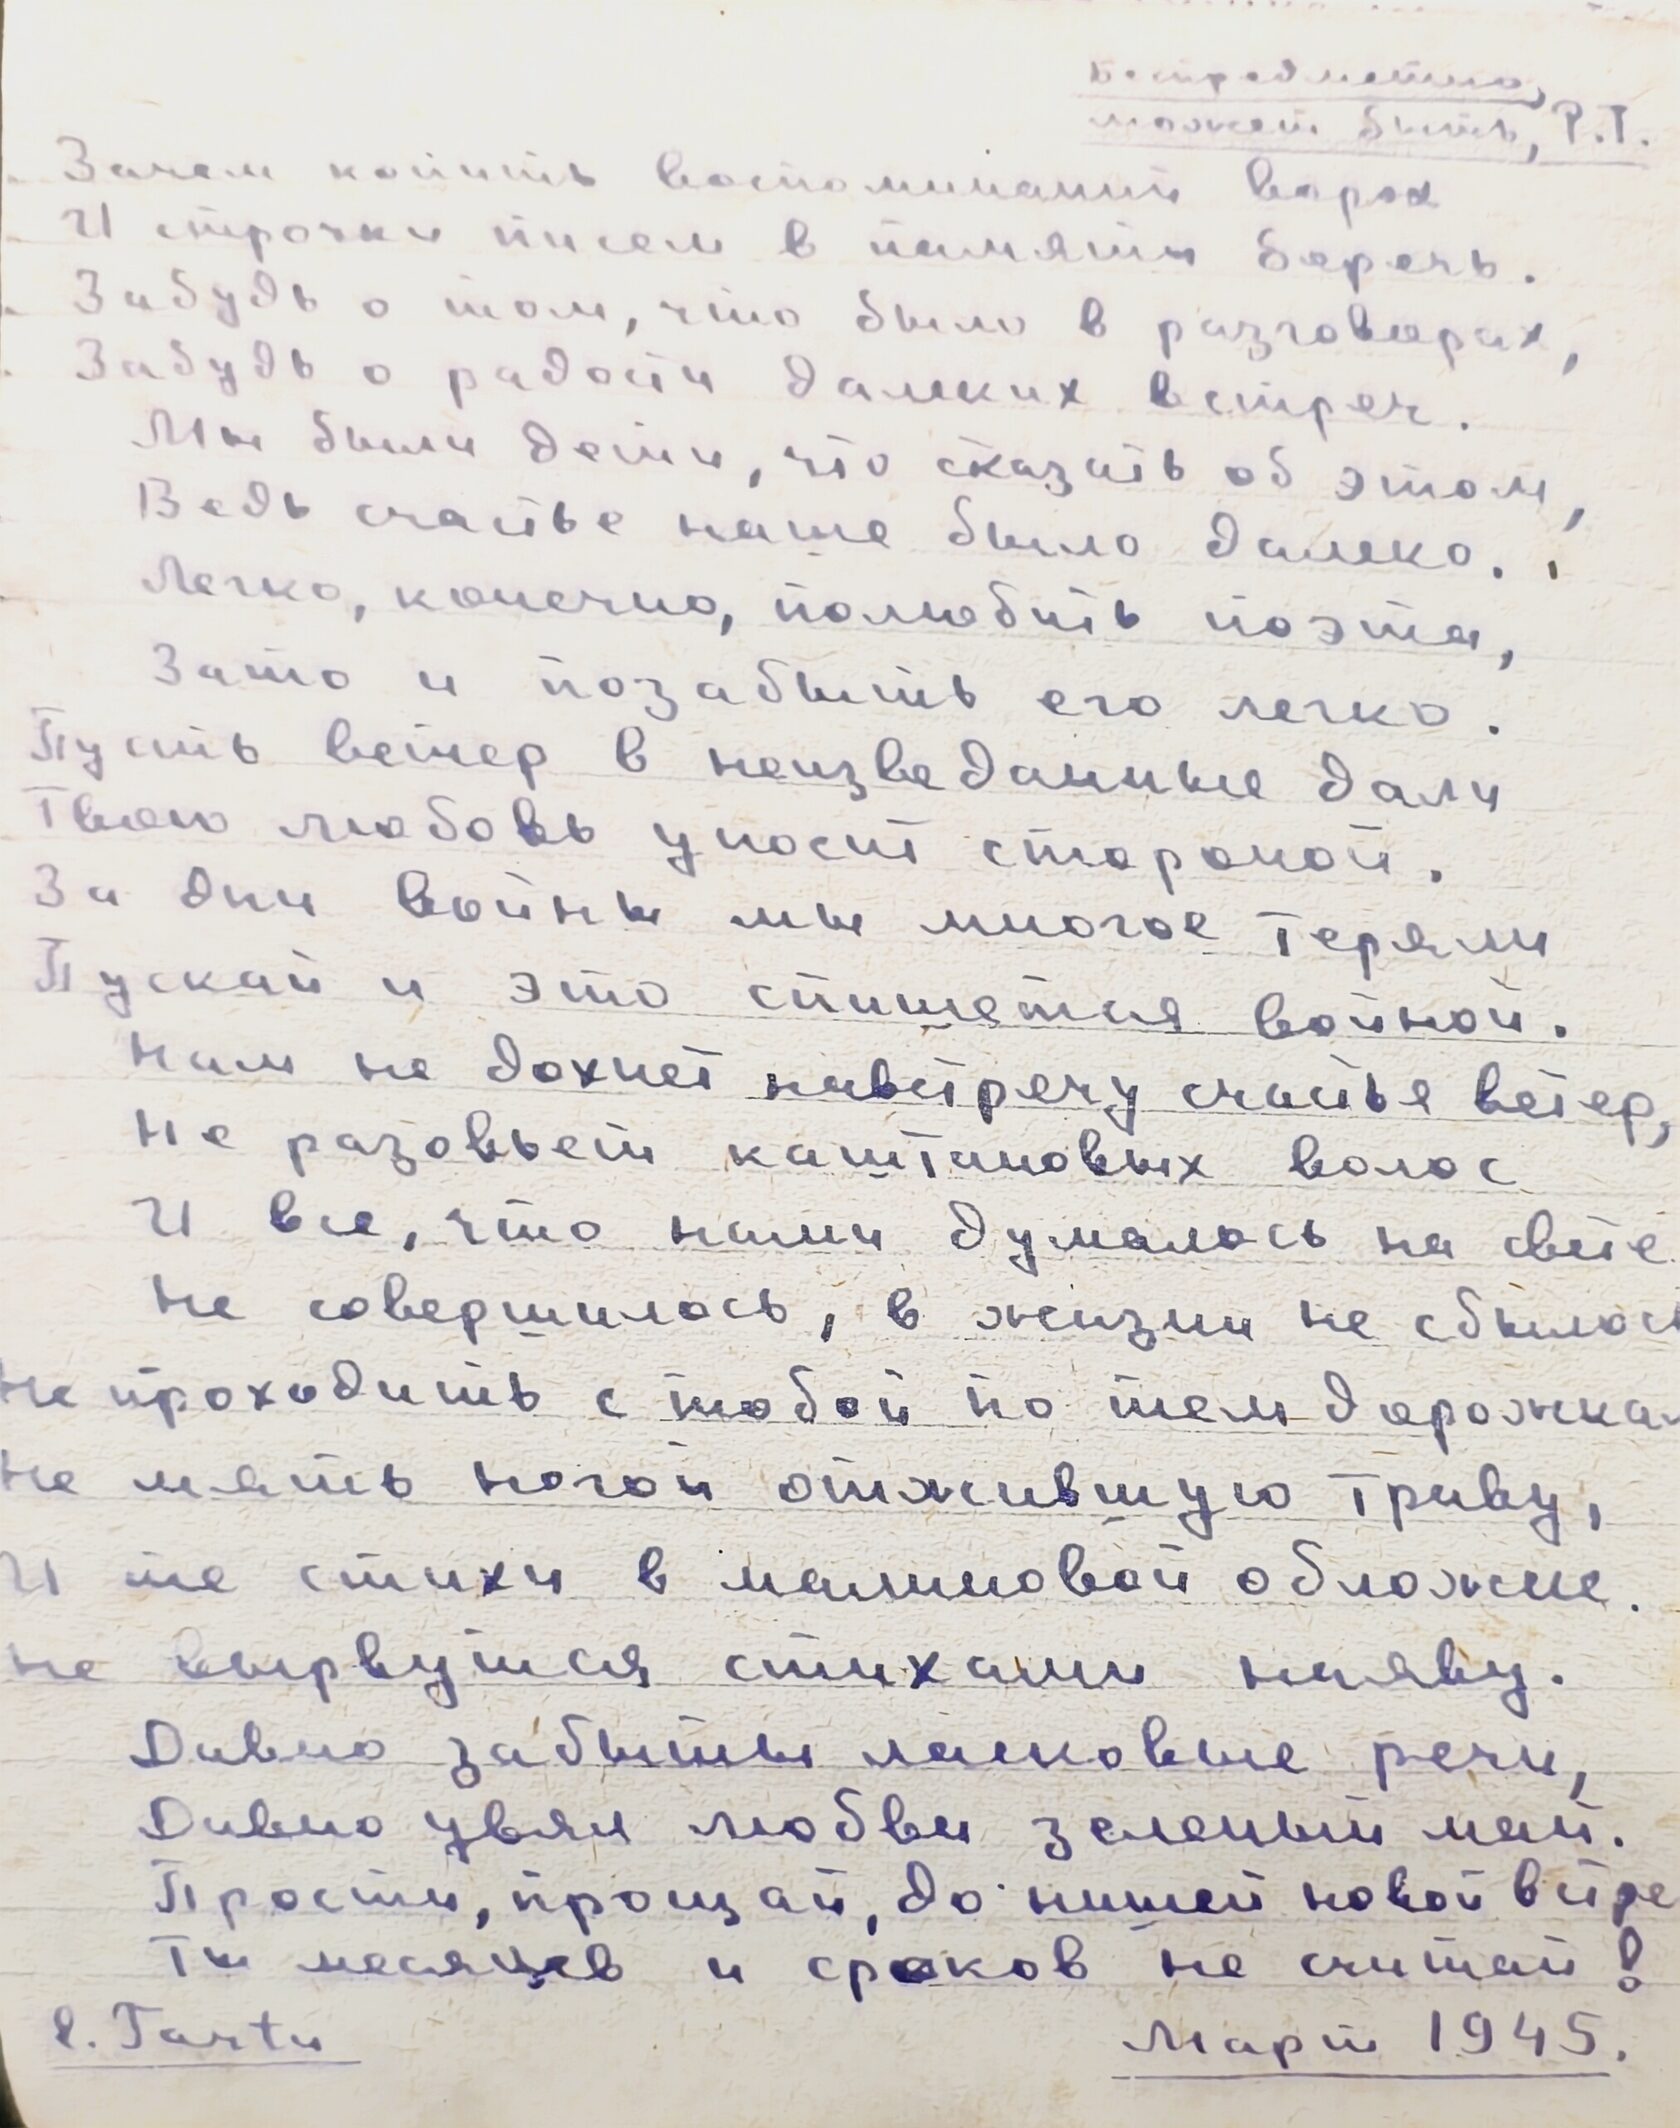 Беспредметно,
может быть, Р.Т.
Зачем копить воспоминаний ворох
И строчки писем в памяти беречь.
Забудь о том, что было в разговорах,
Забудь о радости далеких встреч.
Мы были дети, что сказать об этом,
Ведь счастье наше было далеко.
Легко, конечно, полюбить поэта,
Зато и позабыть его легко.
Пусть ветер в неизведанные дали
Твою любовь уносит стороной.
За дни войны мы многое теряли
Пускай и это спишется войной.
Нам не дохнет навстречу счастье ветер,
Не разовьет каштановых волос
И все, что нами думалось на свете
Не совершилось, в жизни не сбылось
Не проходить с тобой по тем дорожкам
Не мять ногой отжившую траву,
И те стихи в малиновой обложке.
Не вырвутся стихами наяву.
Давно забыты ласковые речи,
Давно увял любви зеленый май.
Прости, прощай, до нашей новой встре
Ты месяцев и сроков не считай!
г. Tartu
Март 1945.